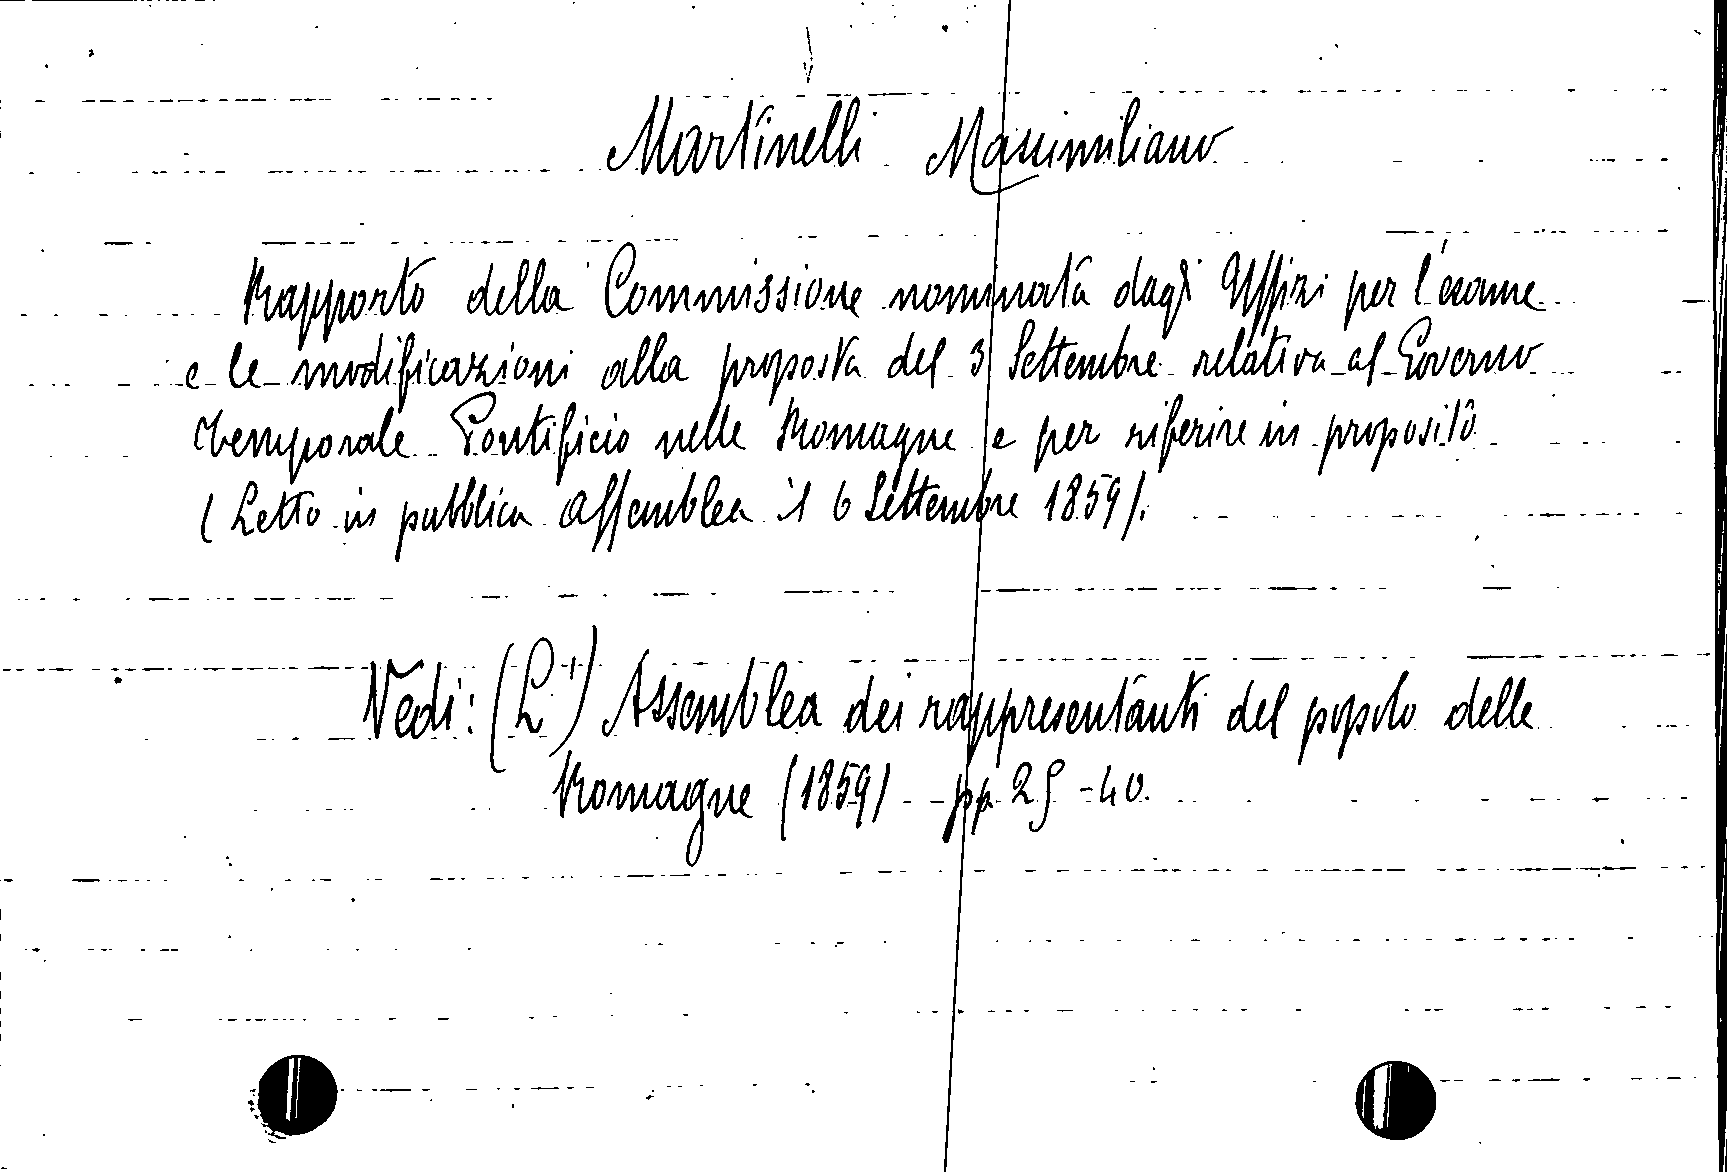 Martinelli Massimiliano
Rapporto della Commissione nominata dagli Uffizi per l'esame
e le modificazioni alla proposta del 3 Settembre relativa al Governo
temporale Pontificio nelle Romagne e per riferire in proposito
(Letto in pubblica Assemblea il 6 Settembre 1859).
Vedi: (L') Assemblea dei rappresentanti del popolo delle
Romagne (1859) pp. 25-40.